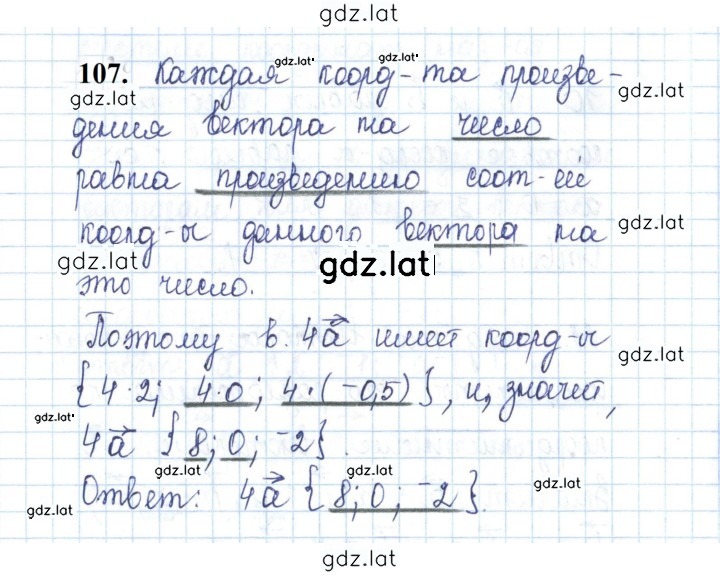 gdz.lat
107. Каждая коорд-та произве-
gdz.lat gdz.lat gdz.lat gdz.lat
дения вектора на число
равна произведению соот-ей
коорд-ы данного вектора на
gdz.lat
gdz.lat gdz.lat
это число.
Поэтому в. 4a имеет коорд-ы
gdz.lat
{4·2; 4·0; 4·(-0,5)}, и, значит,
gdz.lat
4a {8; 0; -2}.
gdz.lat gdz.lat
Ответ: 4a {8; 0; -2}.
gdz.lat gdz.lat
gdz.lat